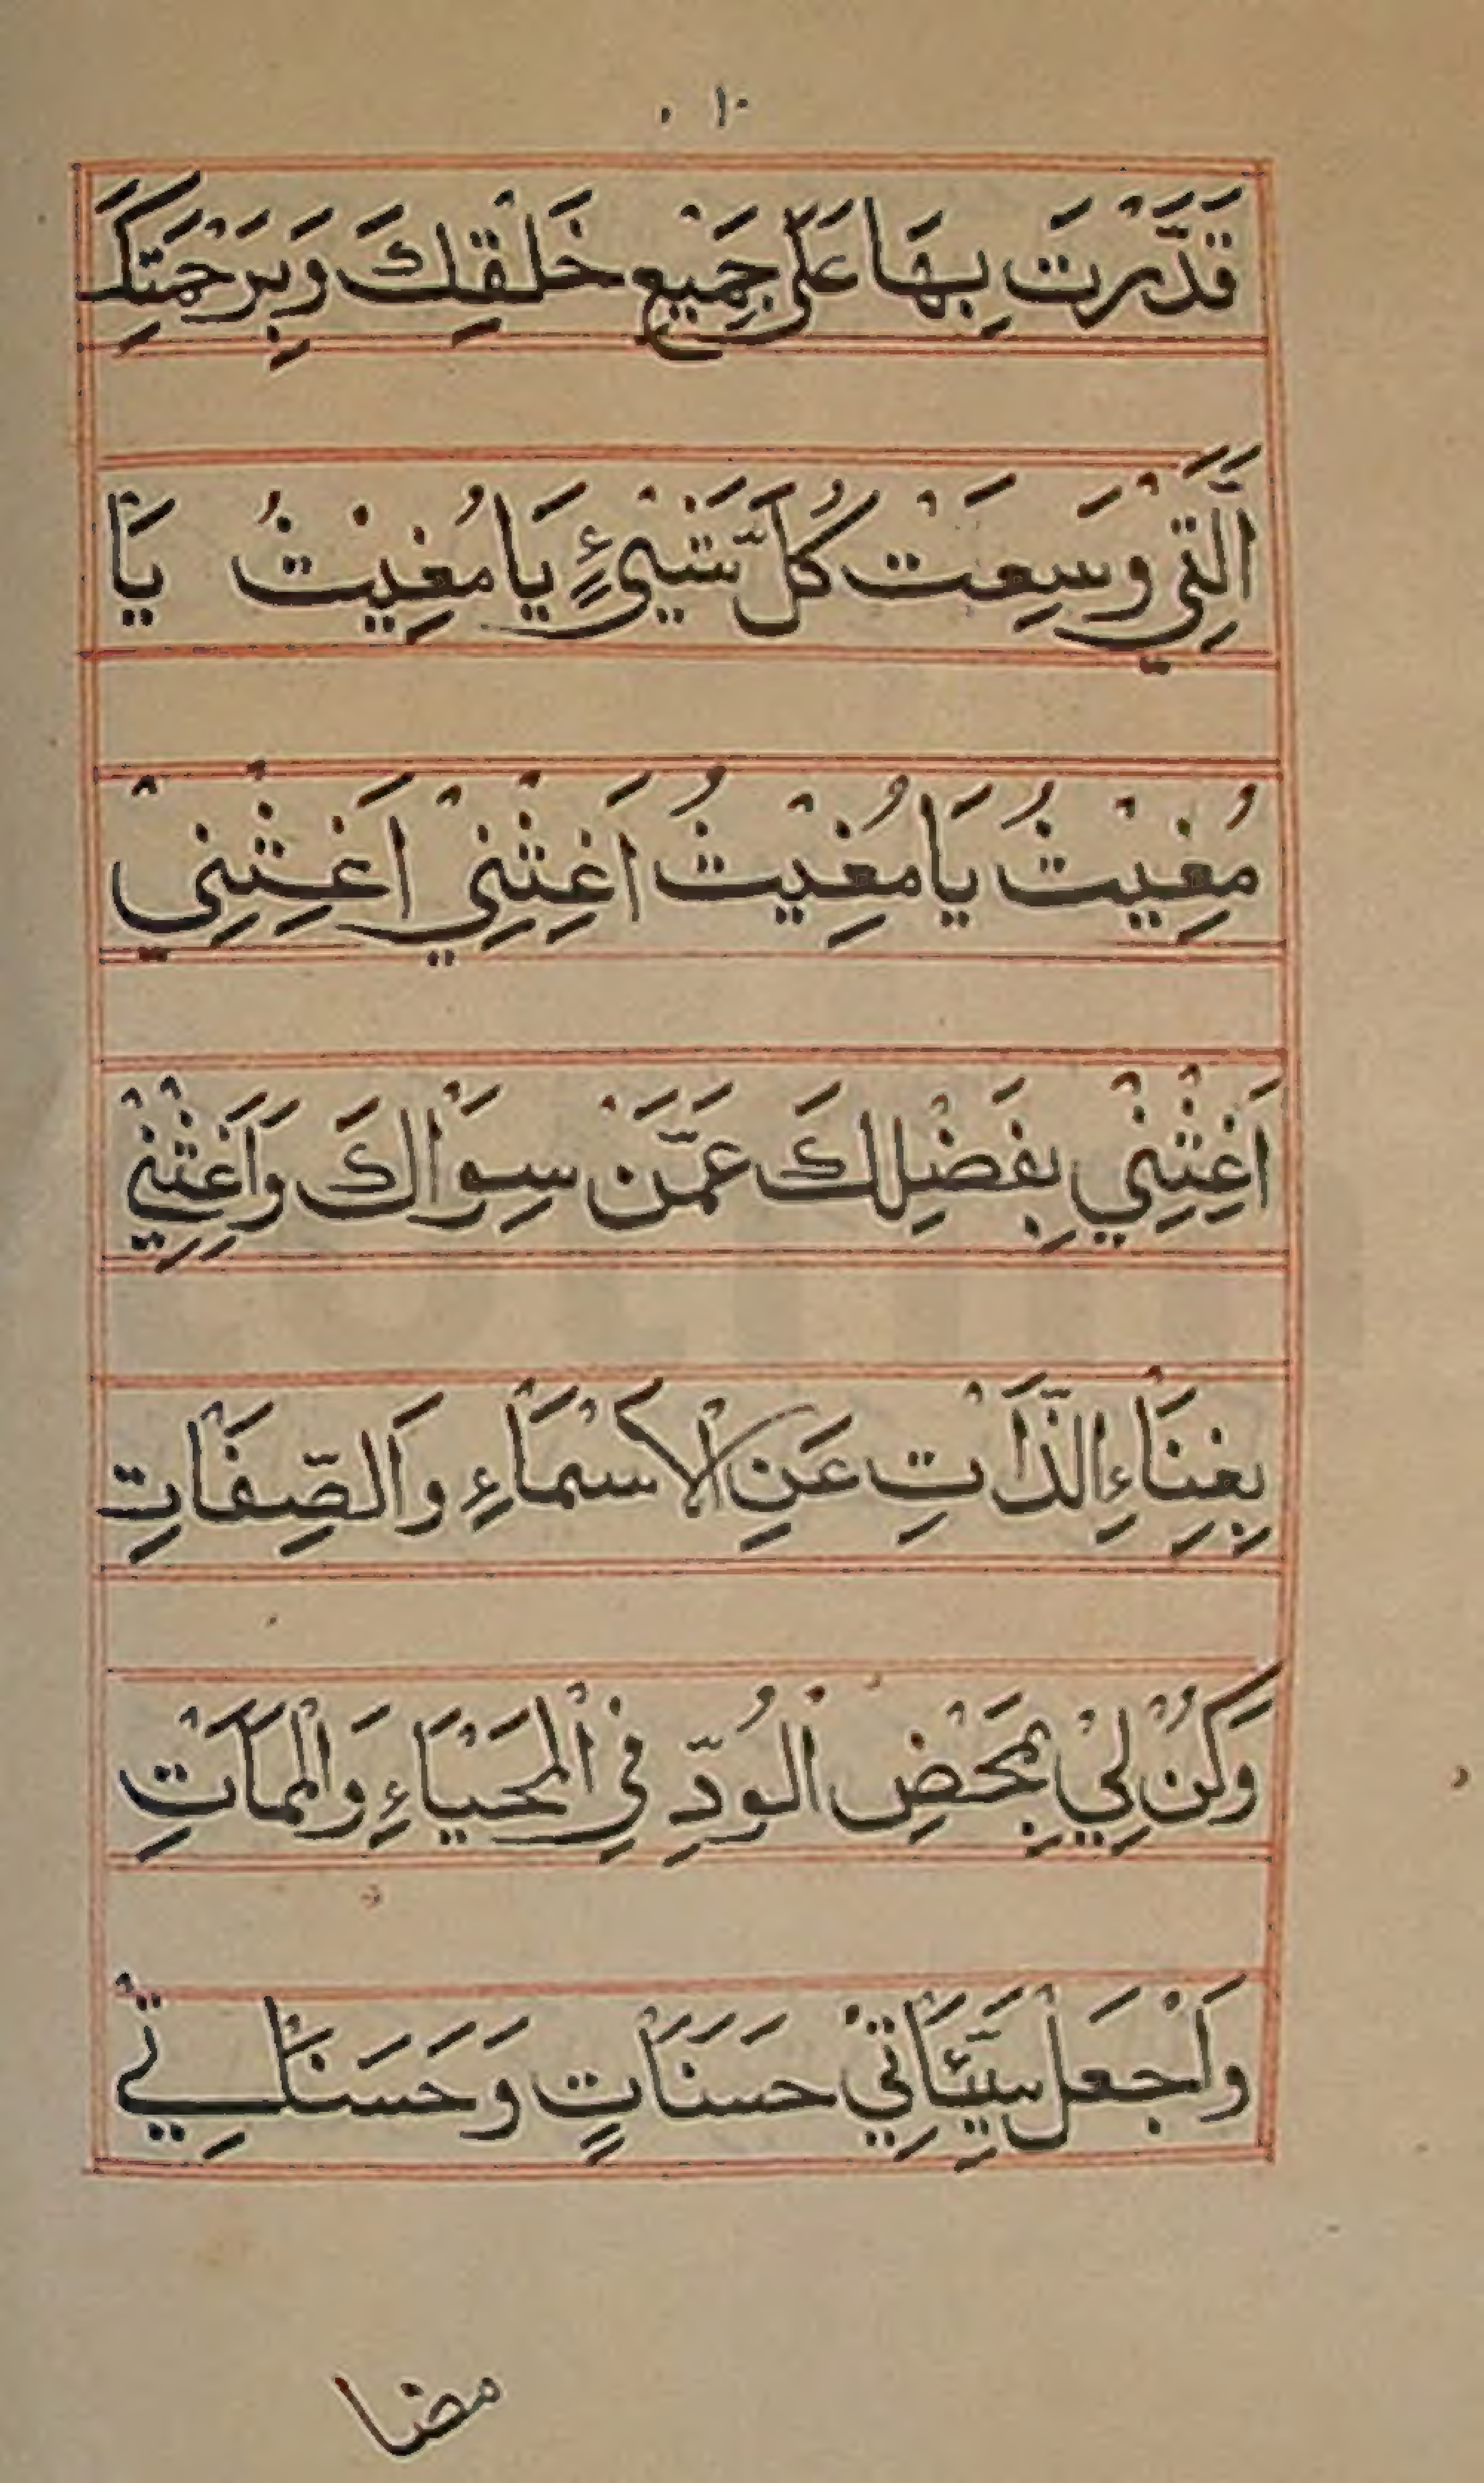 ١٠
قَدَّرْتَ بِهَا عَلَى جَمِيْعِ خَلْقِكَ وَبِرَحْمَتِكَ
الَّتِيْ وَسِعَتْ كُلَّ شَيْئٍ يَا مُغِيْثُ يَا
مُغِيْثُ يَا مُغِيْثُ اَغِثْنِيْ اَغِثْنِيْ
اَغِثْنِيْ بِفَضْلِكَ عَمَّنْ سِوَاكَ وَاَغِثْنِيْ
بِغِنَاءِ الذَّاتِ عَنِ الْاَسْمَاءِ وَالصِّفَاتِ
وَكُنْ لِيْ بِمَحْضِ الْوُدِّ فِي الْمَحْيَاءِ وَالْمَمَاتِ
وَاجْعَلْ سَيِّئَاتِيْ حَسَنَاتٍ وَحَسَنَاتِيْ
مضا